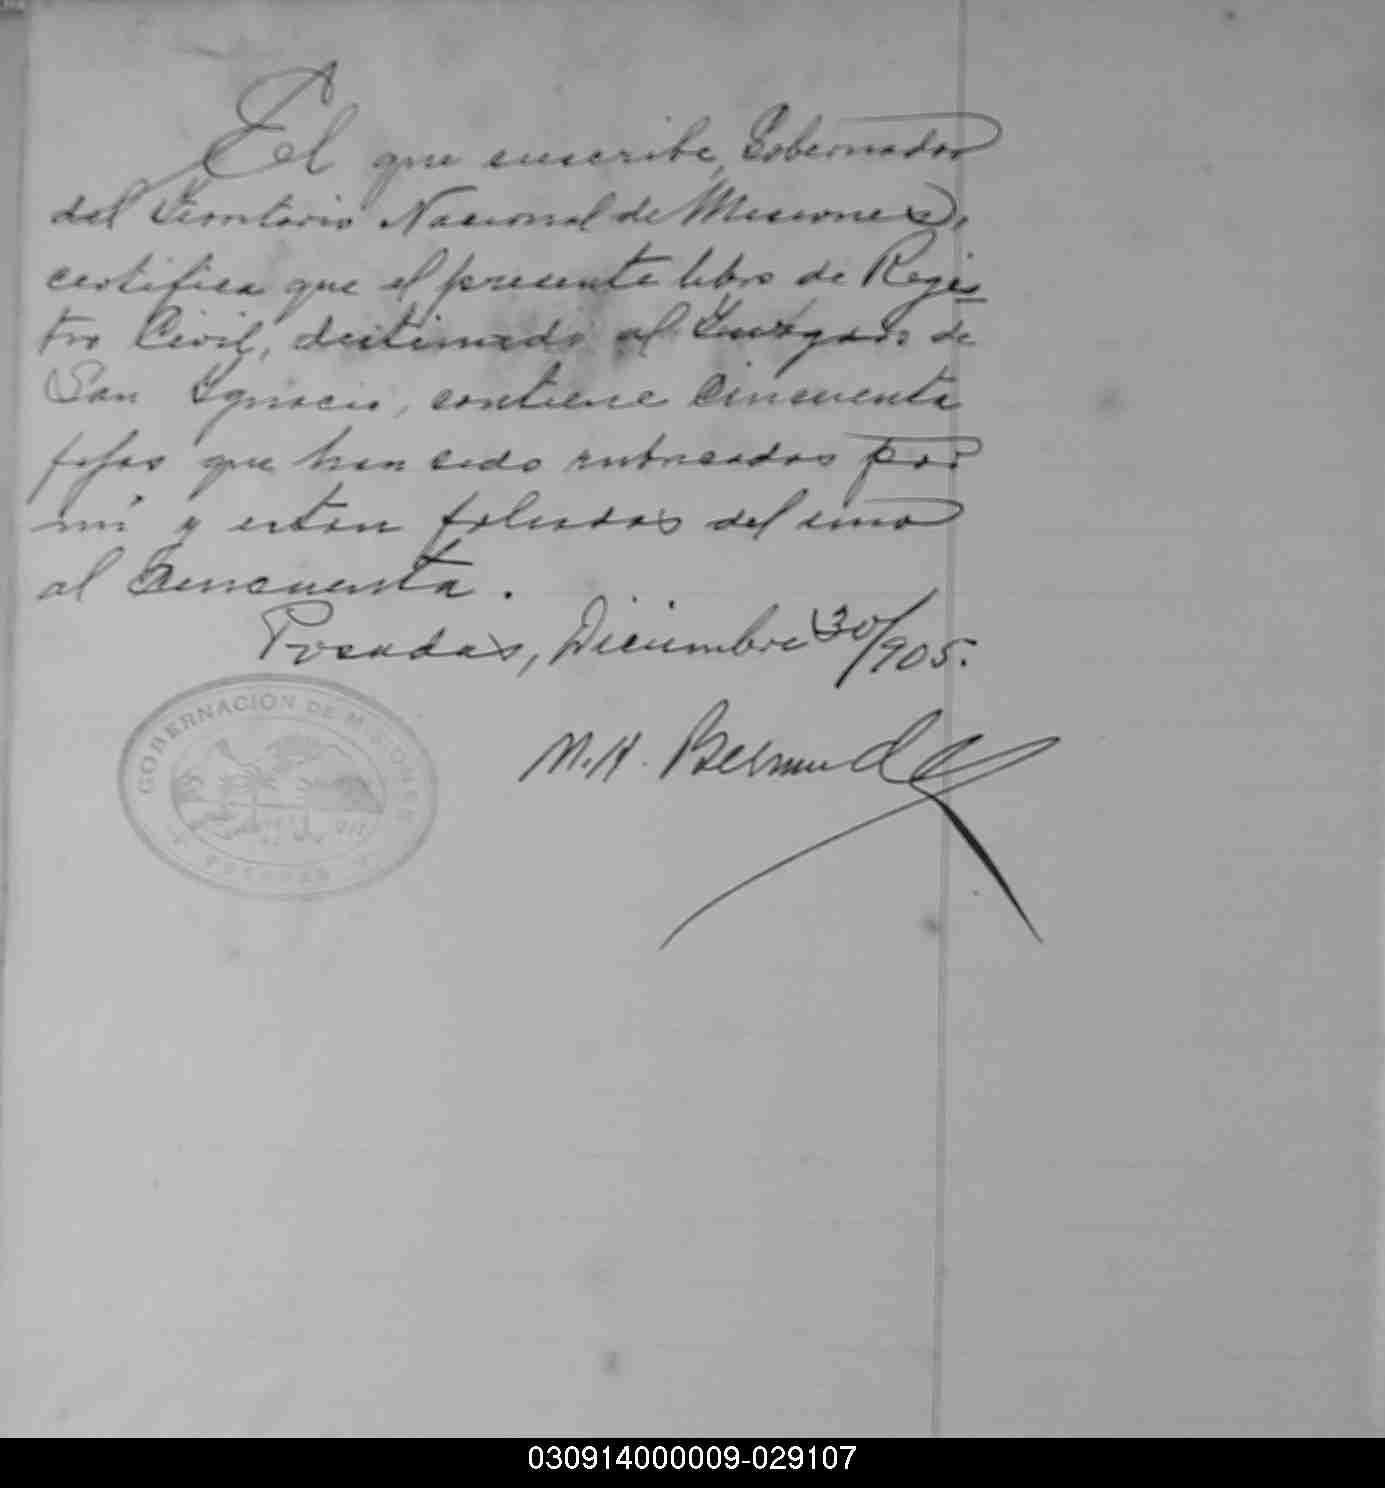 El que suscribe, Gobernador
del Territorio Nacional de Misiones,
certifica que el presente libro de Regis
tro Civil, destinado al Juzgado de
San Ignacio, contiene cincuenta
fojas que han sido rubricadas por
mí y estan foliadas del uno
al Cincuenta.
Posadas, Diciembre 30/905.
M. H. Bermudez
GOBERNACION DE MISIONES
POSADAS
030914000009-029107